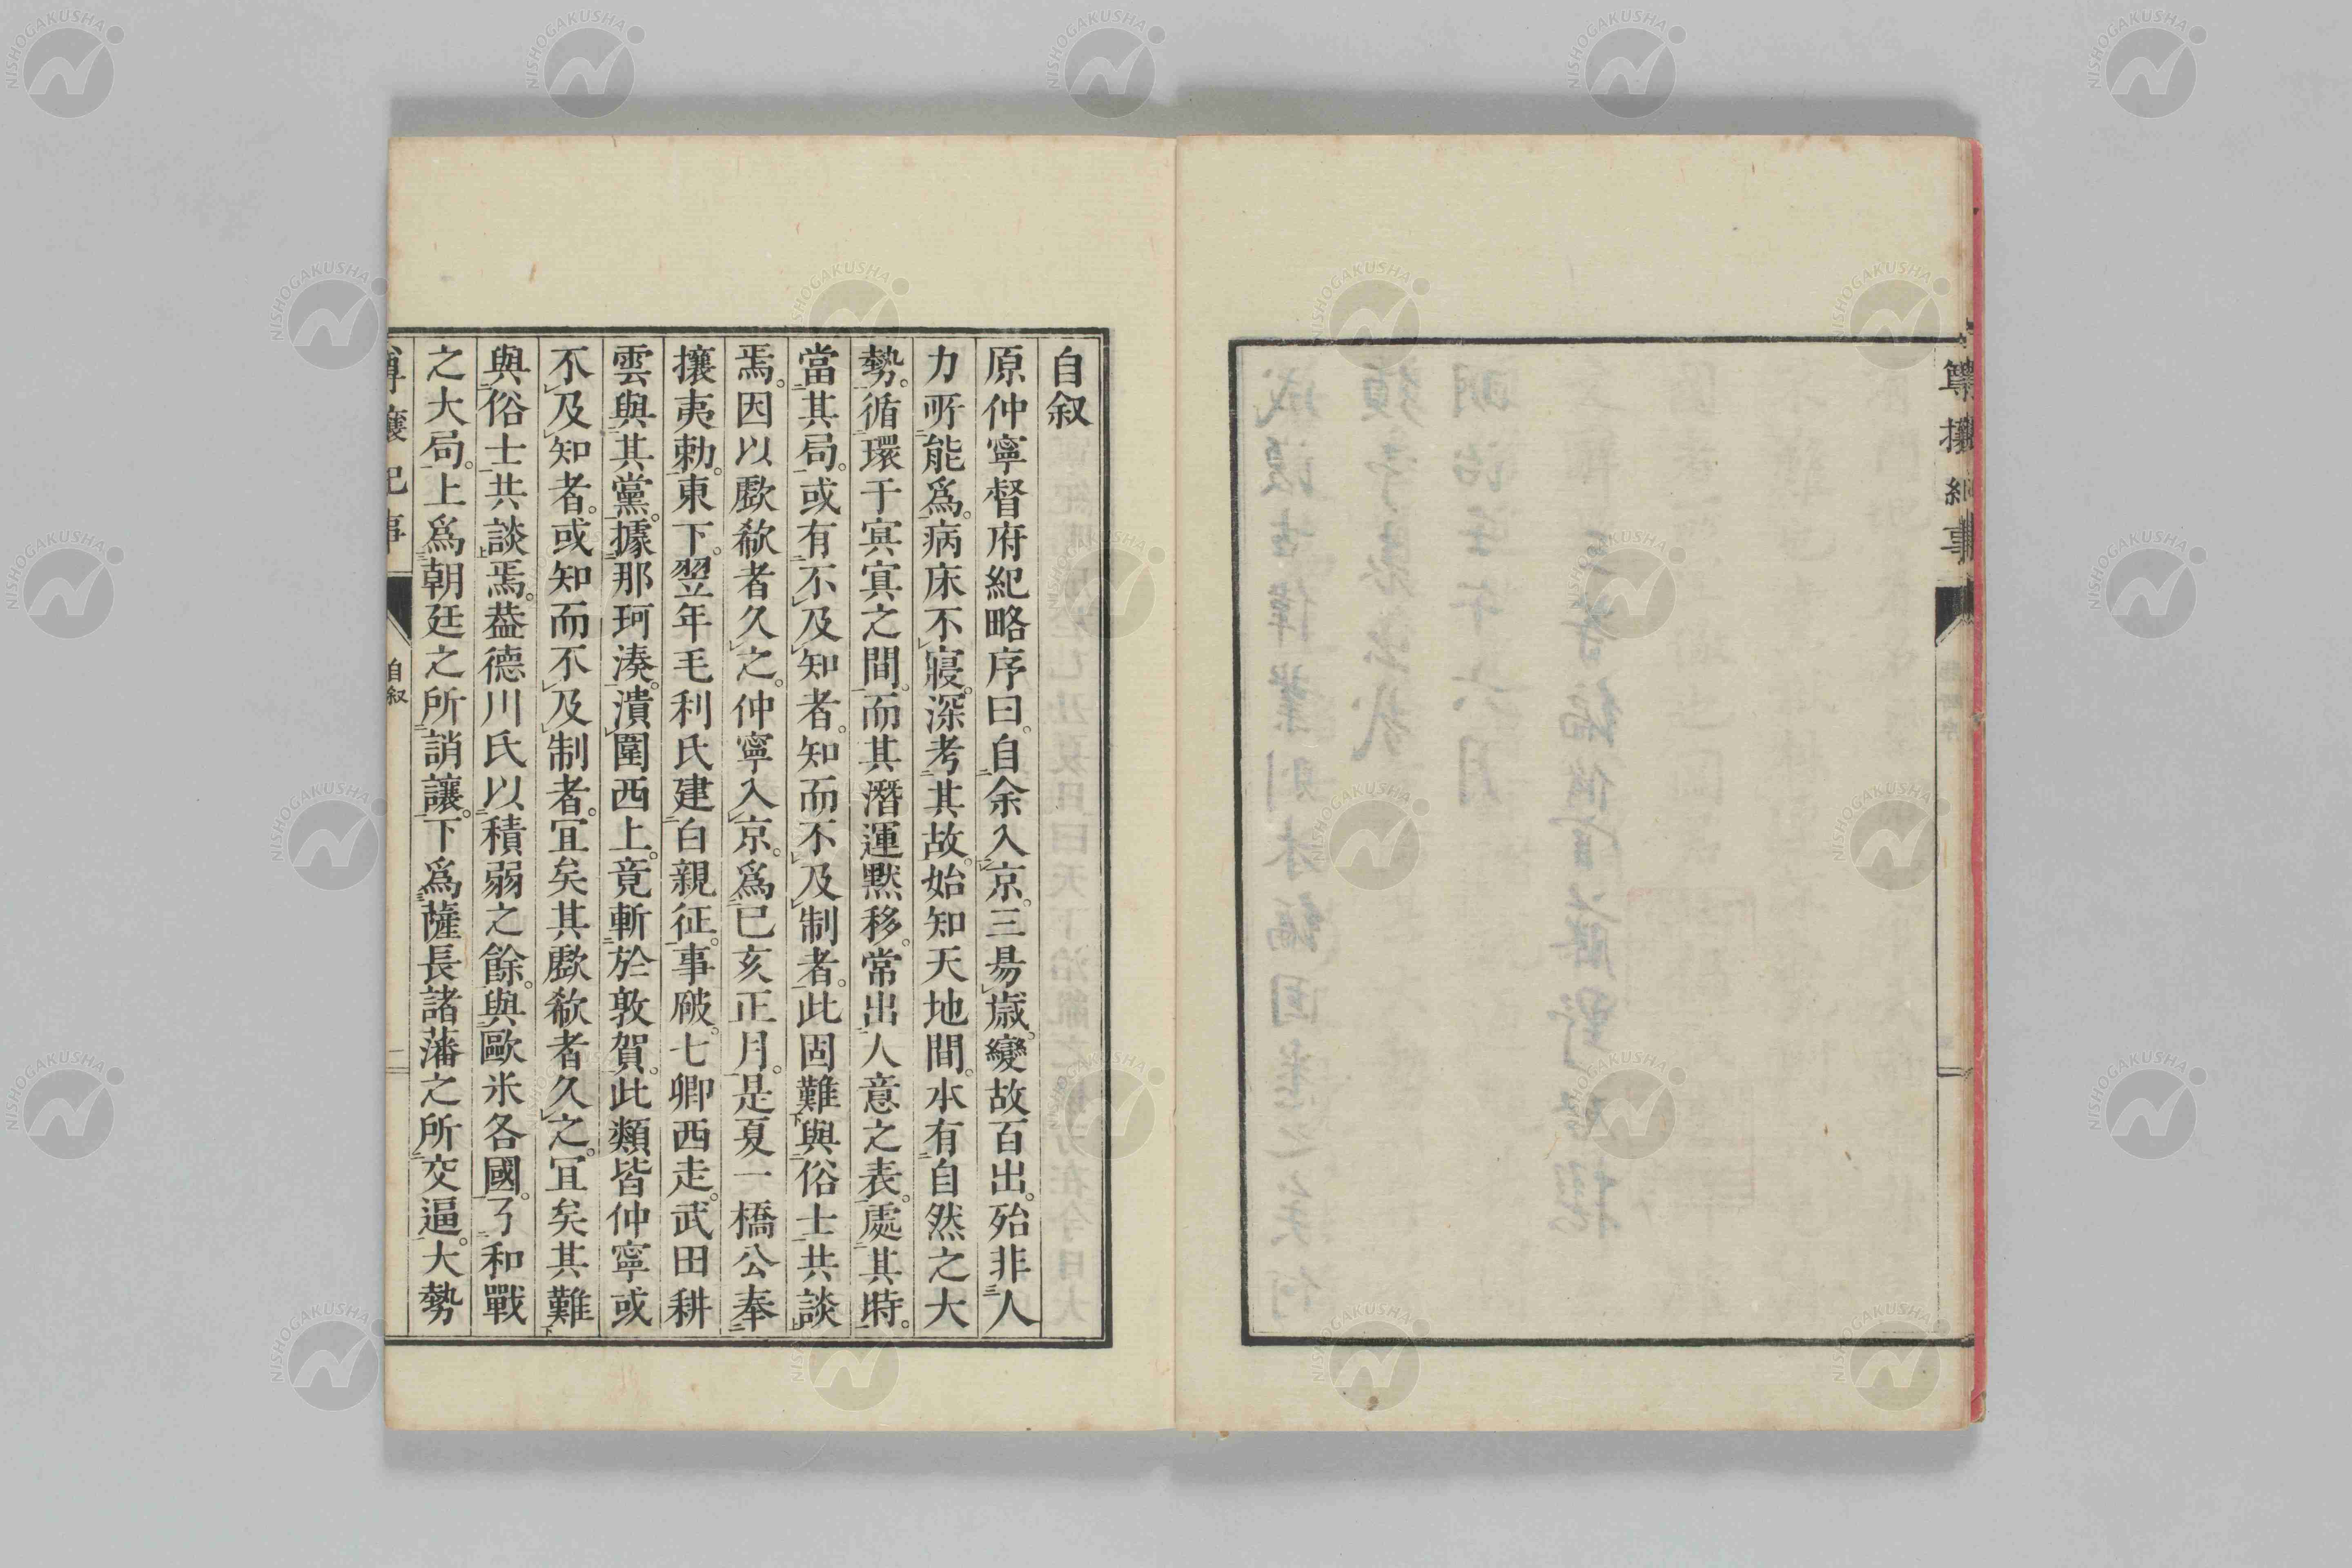 尊攘紀事
自叙
原仲寧督府紀略序曰。自余入京。三易歲。變故百出。殆非人
力所能爲。病床不寢。深考其故。始知天地間。本有自然之大
勢。循環于冥冥之間。而其潛運黙移。常出人意之表。處其時。
當其局。或有不及知者。知而不及制者。此固難與俗士共談
焉。因以歔欷者久之。仲寧入京。爲已亥正月。是夏一橋公奉
攘夷勅。東下。翌年毛利氏建白親征。事破。七卿西走。武田耕
雲與其黨。據那珂湊。潰圍西上。竟斬於敦賀。此類皆仲寧或
不及知者。或知而不及制者。冝矣其歔欷者久之。冝矣其難
與俗士共談焉。葢德川氏以積弱之餘。與歐米各國。了和戰
之大局。上爲朝廷之所誚讓。下爲薩長諸藩之所交逼。大勢
尊攘紀事
自叙
二
NISHOGAKUSHA